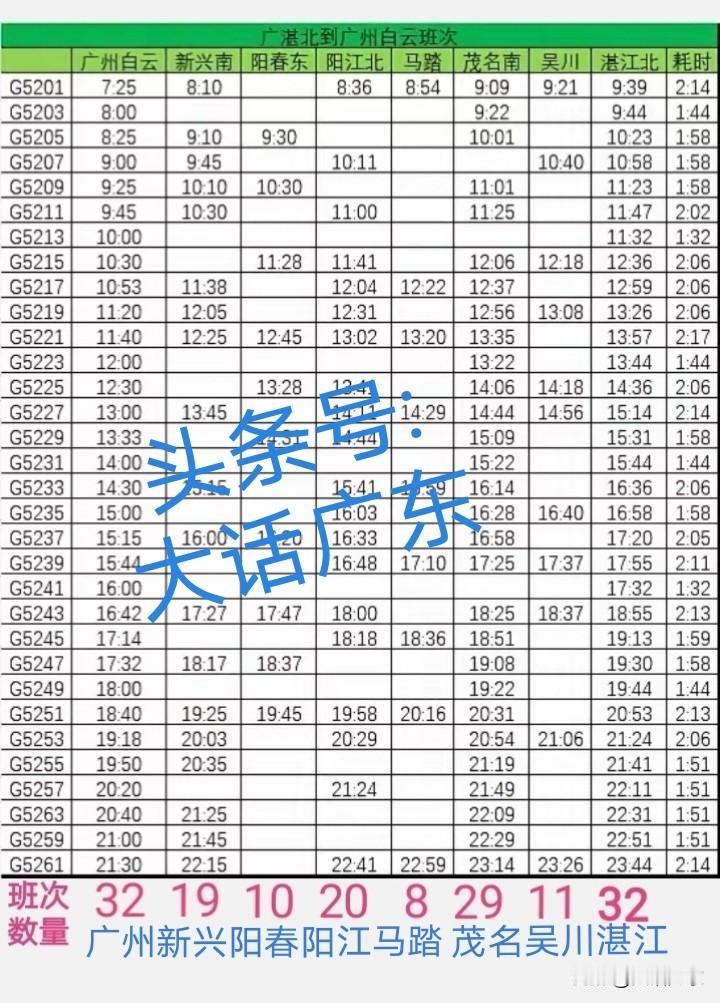 广湛北到广州白云班次
广州白云 新兴南 阳春东 阳江北 马踏 茂名南 吴川 湛江北 耗时
G5201 7:25 8:10 8:36 8:54 9:09 9:21 9:39 2:14
G5203 8:00 9:22 9:44 1:44
G5205 8:25 9:10 9:30 10:01 10:23 1:58
G5207 9:00 9:45 10:11 10:40 10:58 1:58
G5209 9:25 10:10 10:30 11:01 11:23 1:58
G5211 9:45 10:30 11:00 11:25 11:47 2:02
G5213 10:00 11:32 1:32
G5215 10:30 11:28 11:41 12:06 12:18 12:36 2:06
G5217 10:53 11:38 12:04 12:22 12:37 12:59 2:06
G5219 11:20 12:05 12:31 12:56 13:08 13:26 2:06
G5221 11:40 12:25 12:45 13:02 13:20 13:35 13:57 2:17
G5223 12:00 13:22 13:44 1:44
G5225 12:30 13:28 14:06 14:18 14:36 2:06
G5227 13:00 13:45 14:11 14:29 14:44 14:56 15:14 2:14
G5229 13:33 14:31 14:44 15:09 15:31 1:58
G5231 14:00 15:22 15:44 1:44
G5233 14:30 15:15 15:41 15:59 16:14 16:36 2:06
G5235 15:00 16:03 16:28 16:40 16:58 1:58
G5237 15:15 16:00 16:20 16:33 16:58 17:20 2:05
G5239 15:44 16:48 17:10 17:25 17:37 17:55 2:11
G5241 16:00 17:32 1:32
G5243 16:42 17:27 17:47 18:00 18:25 18:37 18:55 2:13
G5245 17:14 18:18 18:36 18:51 19:13 1:59
G5247 17:32 18:17 18:37 19:08 19:30 1:58
G5249 18:00 19:22 19:44 1:44
G5251 18:40 19:25 19:45 19:58 20:16 20:31 20:53 2:13
G5253 19:18 20:03 20:29 20:54 21:06 21:24 2:06
G5255 19:50 20:35 21:19 21:41 1:51
G5257 20:20 21:24 21:49 22:11 1:51
G5263 20:40 21:25 22:09 22:31 1:51
G5259 21:00 21:45 22:29 22:51 1:51
G5261 21:30 22:15 22:41 22:59 23:14 23:26 23:44 2:14
头条号:
大话广东
班次数量 32 19 10 20 8 29 11 32
广州新兴阳春阳江马踏 茂名吴川湛江